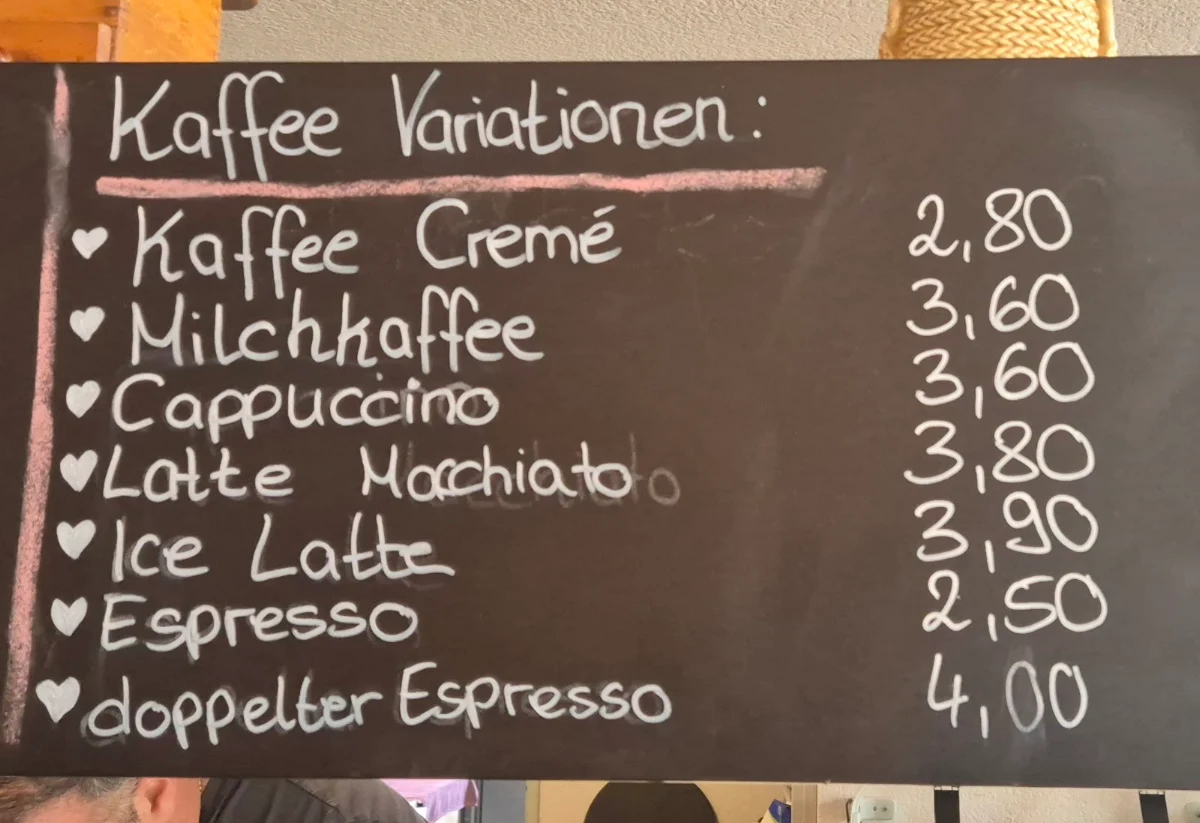 Kaffee Variationen:
♥ Kaffee Cremé 2,80
♥ Milchkaffee 3,60
♥ Cappuccino 3,60
♥ Latte Macchiato 3,80
♥ Ice Latte 3,90
♥ Espresso 2,50
♥ doppelter Espresso 4,00